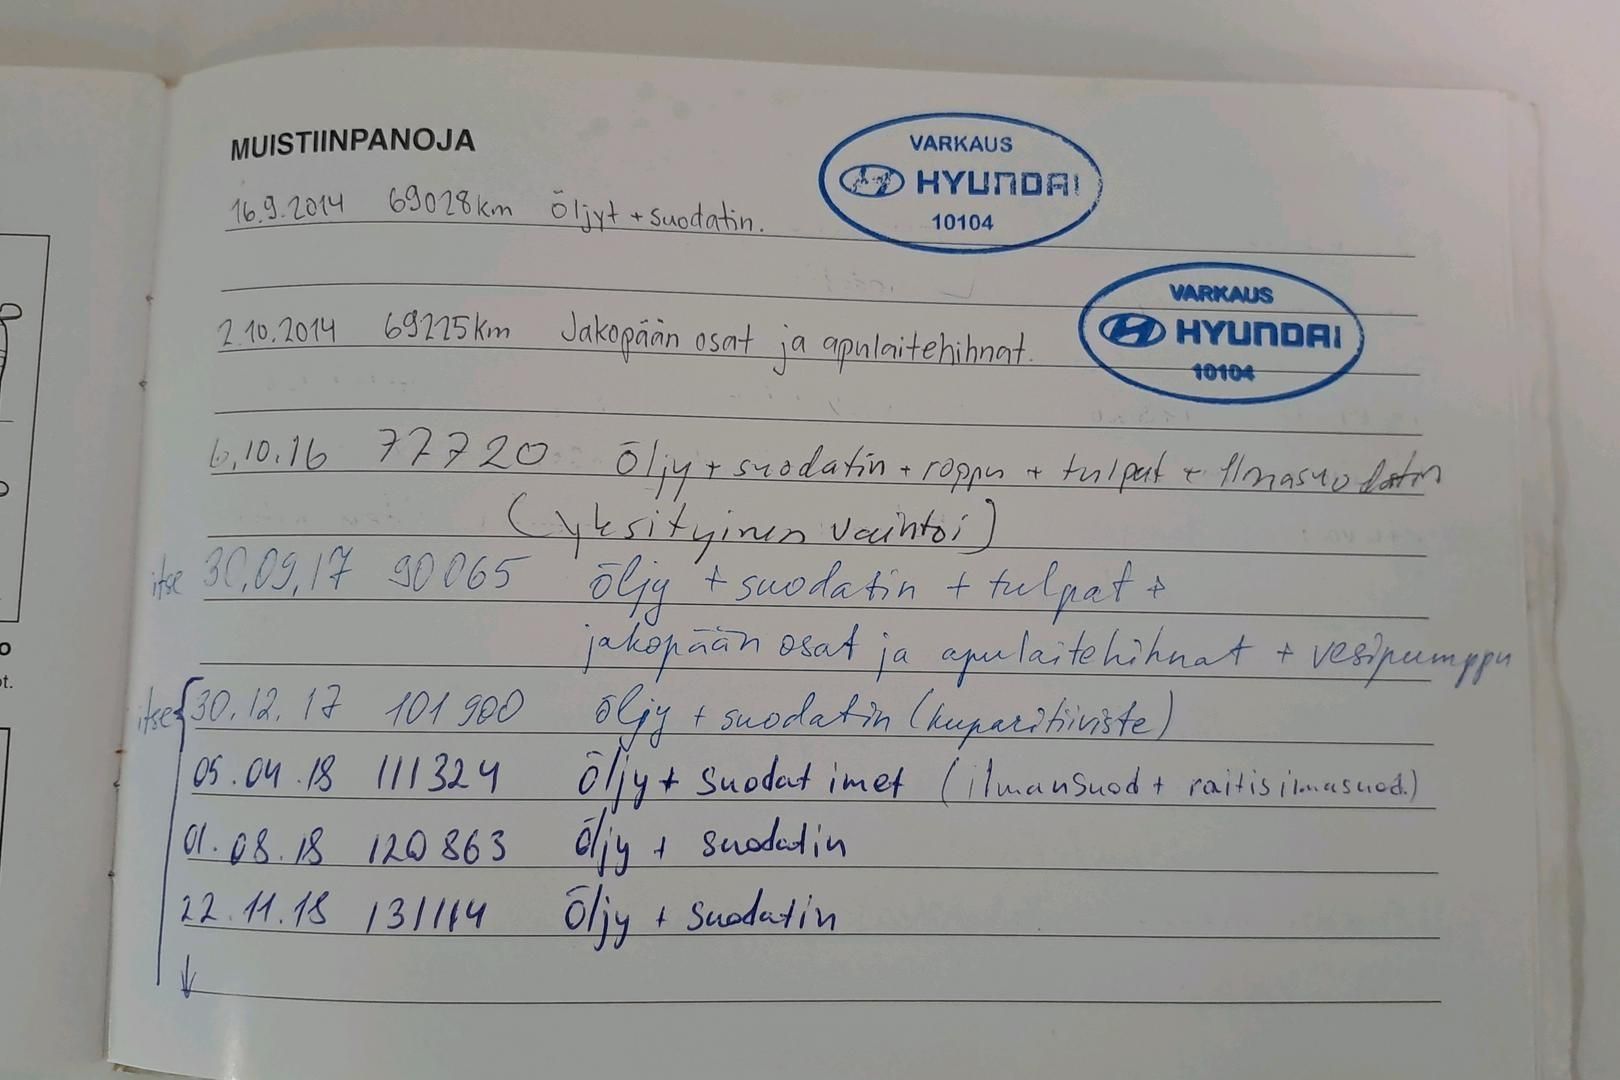 MUISTIINPANOJA
VARKAUS
HYUNDAI
10104
16.9.2014 69028km Öljyt + suodatin.
VARKAUS
HYUNDAI
10104
2.10.2014 69225km Jakopään osat ja apulaitehihnat.
6.10.16 77720 Öljy + suodatin + roppu + tulpat + Ilmasuodatin
(yksityinen vaihtoi)
itse 30.09.17 90065 öljy + suodatin + tulpat +
jakopään osat ja apulaitehihnat + vesipumppu
itse 30.12.17 101900 öljy + suodatin (kuparitiiviste)
05.04.18 111324 Öljy + suodatimet (ilmansuod + raitisilmasuod.)
01.08.18 120863 Öljy + suodatin
22.11.18 131114 Öljy + suodatin
o
ot.